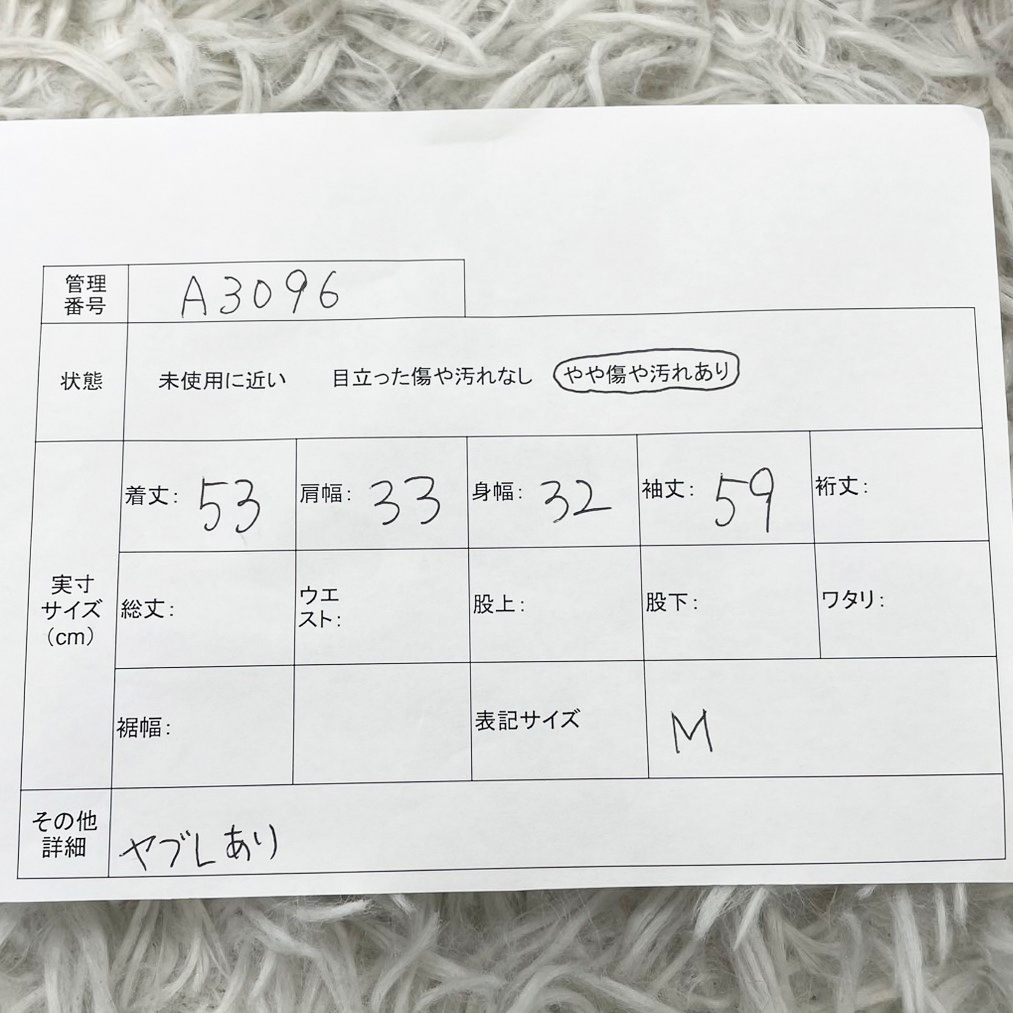 管理
番号
A3096
状態
未使用に近い 目立った傷や汚れなし やや傷や汚れあり
実寸
サイズ
(cm)
着丈: 53 肩幅: 33 身幅: 32 袖丈: 59 裄丈:
総丈: ウエ
スト: 股上: 股下: ワタリ:
裾幅: 表記サイズ M
その他
詳細
ヤブレあり